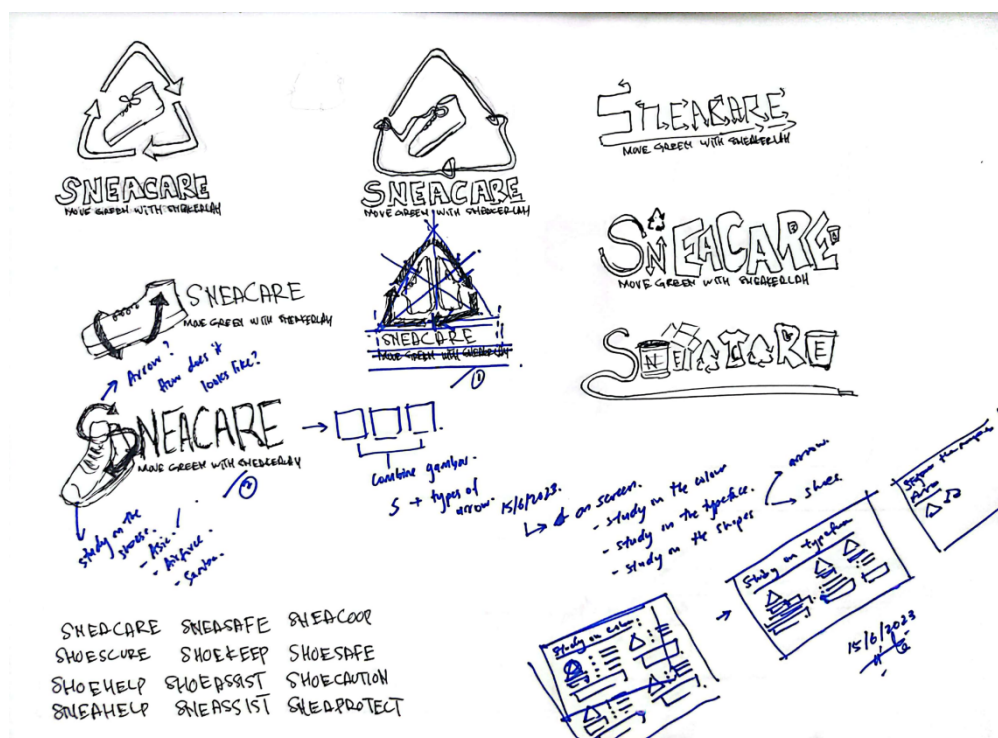 SNEACARE
MOVE GREEN WITH SNEAKERLAH
SNEACARE
MOVE GREEN WITH SNEAKERLAH
SNEACARE
MOVE GREEN WITH SNEAKERLAH
SNEACARE
MOVE GREEN WITH SNEAKERLAH
SNEACARE
MOVE GREEN WITH SNEAKERLAH
SNEACARE
MOVE GREEN WITH SNEAKERLAH
1
SNEACARE
Arrow?
how does it
looks like?
SNEACARE
MOVE GREEN WITH SNEAKERLAH
2
combine gambar.
S → types of
arrow.
study on the
shoes.
- Asic
- Airforce
- Samba.
15/6/2023.
on screen.
- study on the colour
- study on the typeface.
- study on the shapes
arrow.
shoe.
Study on color:
Study on typeface
15/6/2023
SNEACARE SNEASAFE SNEACOOP
SHOESCURE SHOEKEEP SHOESAFE
SHOEHELP SHOEASSIST SHOECAUTION
SNEAHELP SNEASSIST SNEAPROTECT